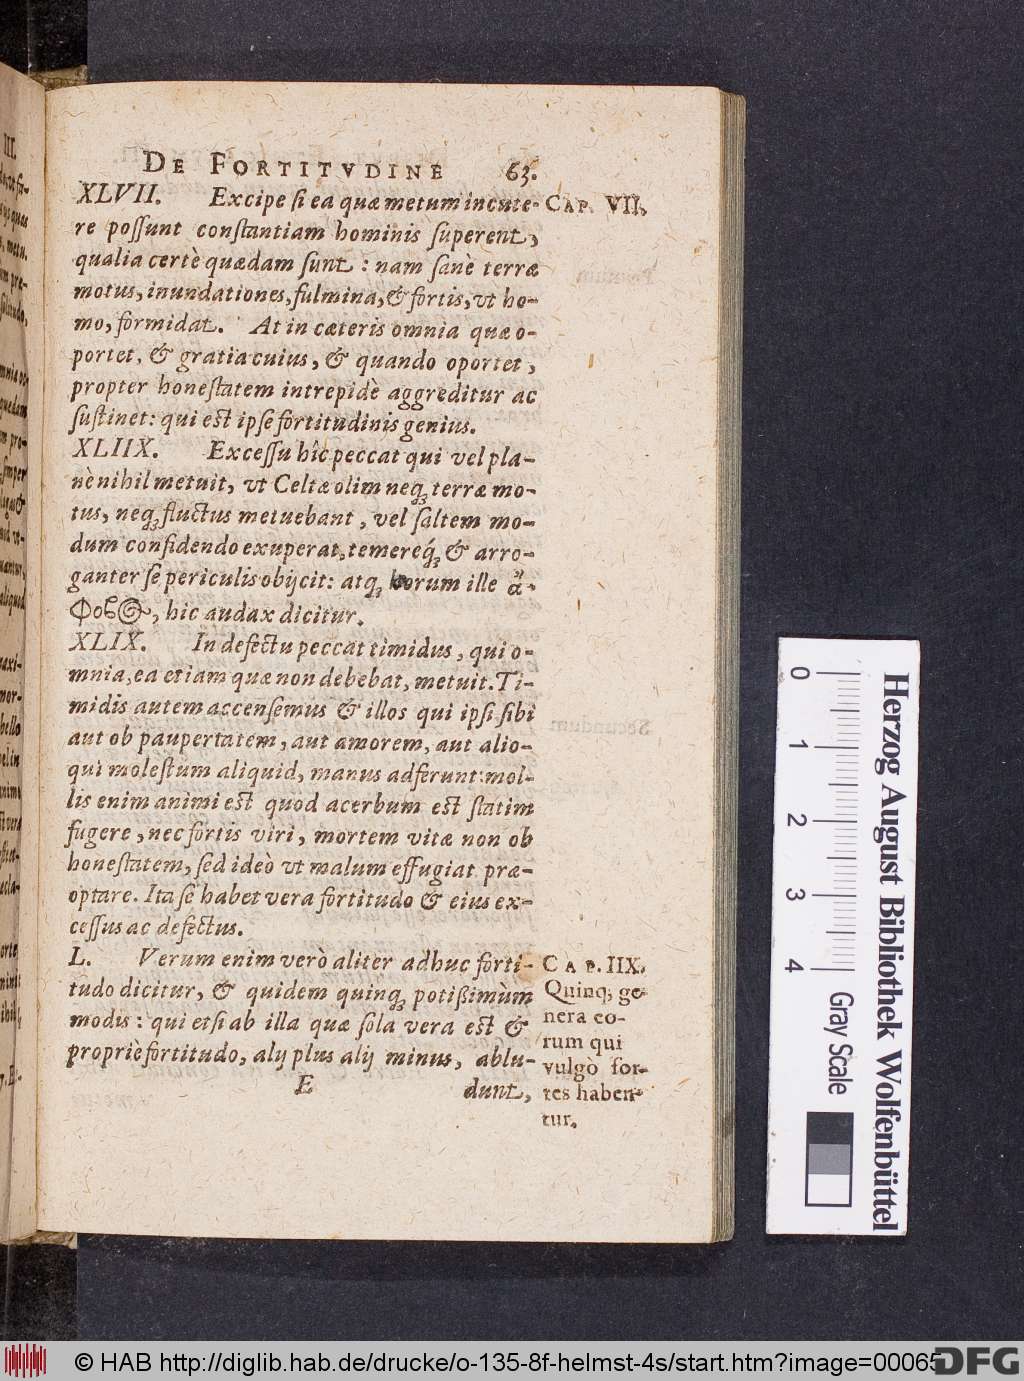 DE FORTITVDINE 63.
XLVII. Excipe si ea quæ metum incute- CAP. VII.
re possunt constantiam hominis superent,
qualia certè quædam sunt : nam sanè terræ
motus, inundationes, fulmina, & fortis, vt ho-
mo, formidat. At in cæteris omnia quæ o-
portet, & gratia cuius, & quando oportet,
propter honestatem intrepidè aggreditur ac
sustinet: qui est ipse fortitudinis genius.
XLIIX. Excessu hîc peccat qui vel pla-
nè nihil metuit, vt Celtæ olim neq; terræ mo-
tus, neq; fluctus metuebant, vel saltem mo-
dum confidendo exuperat, temereq́; & arro-
ganter se periculis obijcit: atq; horum ille ἄ-
φοβος, hic audax dicitur.
XLIX. In defectu peccat timidus, qui o-
mnia, ea etiam quæ non debebat, metuit. Ti-
midis autem accensemus & illos qui ipsi sibi
aut ob paupertatem, aut amorem, aut alio-
qui molestum aliquid, manus adferunt: mol-
lis enim animi est quod acerbum est statim
fugere, nec fortis viri, mortem vitæ non ob
honestatem, sed ideò vt malum effugiat præ-
optare. Ita se habet vera fortitudo & eius ex-
cessus ac defectus.
L. Verum enim verò aliter adhuc forti-
tudo dicitur, & quidem quinq; potißimùm
modis : qui etsi ab illa quæ sola vera est &
propriè fortitudo, alij plus alij minus, ablu-
E dunt,
CAP. IIX.
Quinq; ge-
nera eo-
rum qui
vulgò for-
tes haben-
tur.
0 1 2 3 4 Gray Scale
Herzog August Bibliothek Wolfenbüttel
© HAB http://diglib.hab.de/drucke/o-135-8f-helmst-4s/start.htm?image=00065
DFG